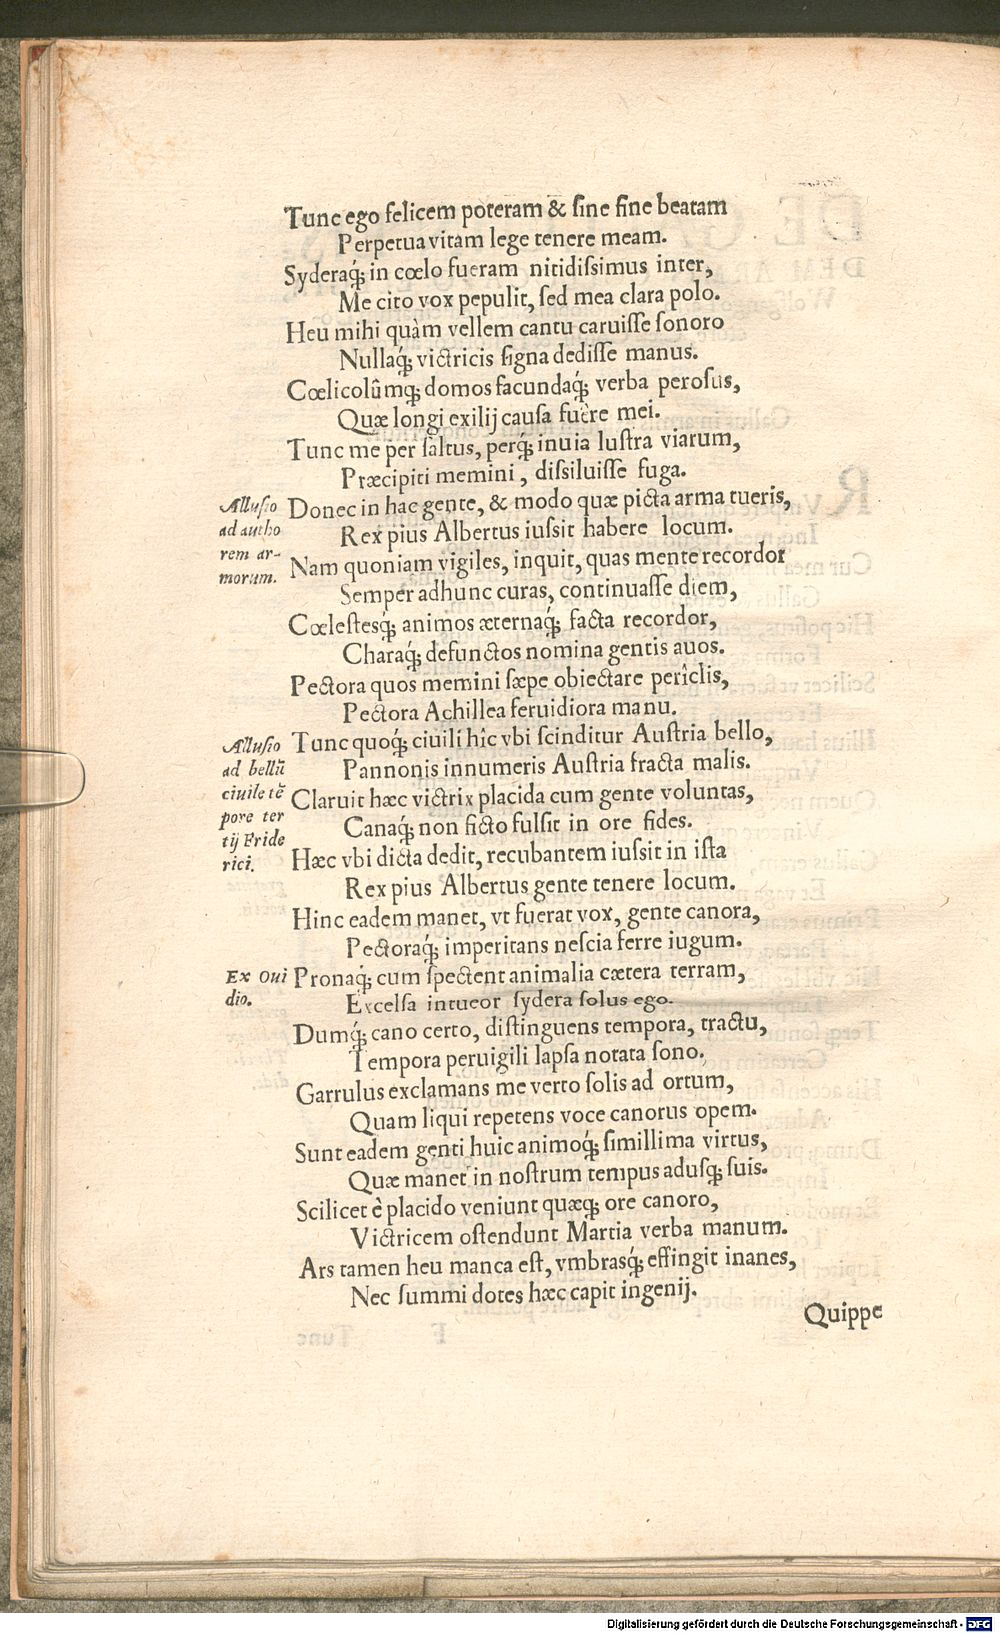 Tunc ego felicem poteram & sine fine beatam
Perpetua vitam lege tenere meam.
Syderaq́; in cœlo fueram nitidissimus inter,
Me cito vox pepulit, sed mea clara polo.
Heu mihi quàm vellem cantu caruisse sonoro
Nullaq́; victricis signa dedisse manus.
Cœlicolûmq́; domos facundaq́; verba perosus,
Quæ longi exilij causa fuêre mei.
Tunc me per saltus, perq́; inuia lustra viarum,
Præcipiti memini, dissiluisse fuga.
Allusio
ad autho
rem ar-
morum.
Donec in hac gente, & modo quæ picta arma tueris,
Rex pius Albertus iussit habere locum.
Nam quoniam vigiles, inquit, quas mente recordor
Semper adhunc curas, continuasse diem,
Cœlestesq́; animos æternaq́; facta recordor,
Charaq́; defunctos nomina gentis auos.
Pectora quos memini sæpe obiectare perîclis,
Pectora Achillea feruidiora manu.
Allusio
ad bellū
ciuile tē
pore ter
tij Fride
rici.
Tunc quoq́; ciuili hîc vbi scinditur Austria bello,
Pannonis innumeris Austria fracta malis.
Claruit hæc victrix placida cum gente voluntas,
Canaq́; non ficto fulsit in ore fides.
Hæc vbi dicta dedit, recubantem iussit in ista
Rex pius Albertus gente tenere locum.
Hinc eadem manet, vt fuerat vox, gente canora,
Pectoraq́; imperitans nescia ferre iugum.
Ex Oui
dio.
Pronaq́; cum spectent animalia cætera terram,
Excelsa intueor sydera solus ego.
Dumq́; cano certo, distinguens tempora, tractu,
Tempora peruigili lapsa notata sono.
Garrulus exclamans me verto solis ad ortum,
Quam liqui repetens voce canorus opem.
Sunt eadem genti huic animoq́; simillima virtus,
Quæ manet in nostrum tempus adusq́; suis.
Scilicet è placido veniunt quæq́; ore canoro,
Victricem ostendunt Martia verba manum.
Ars tamen heu manca est, vmbrasq́; effingit inanes,
Nec summi dotes hæc capit ingenij.
Quippe
Digitalisierung gefördert durch die Deutsche Forschungsgemeinschaft - DFG